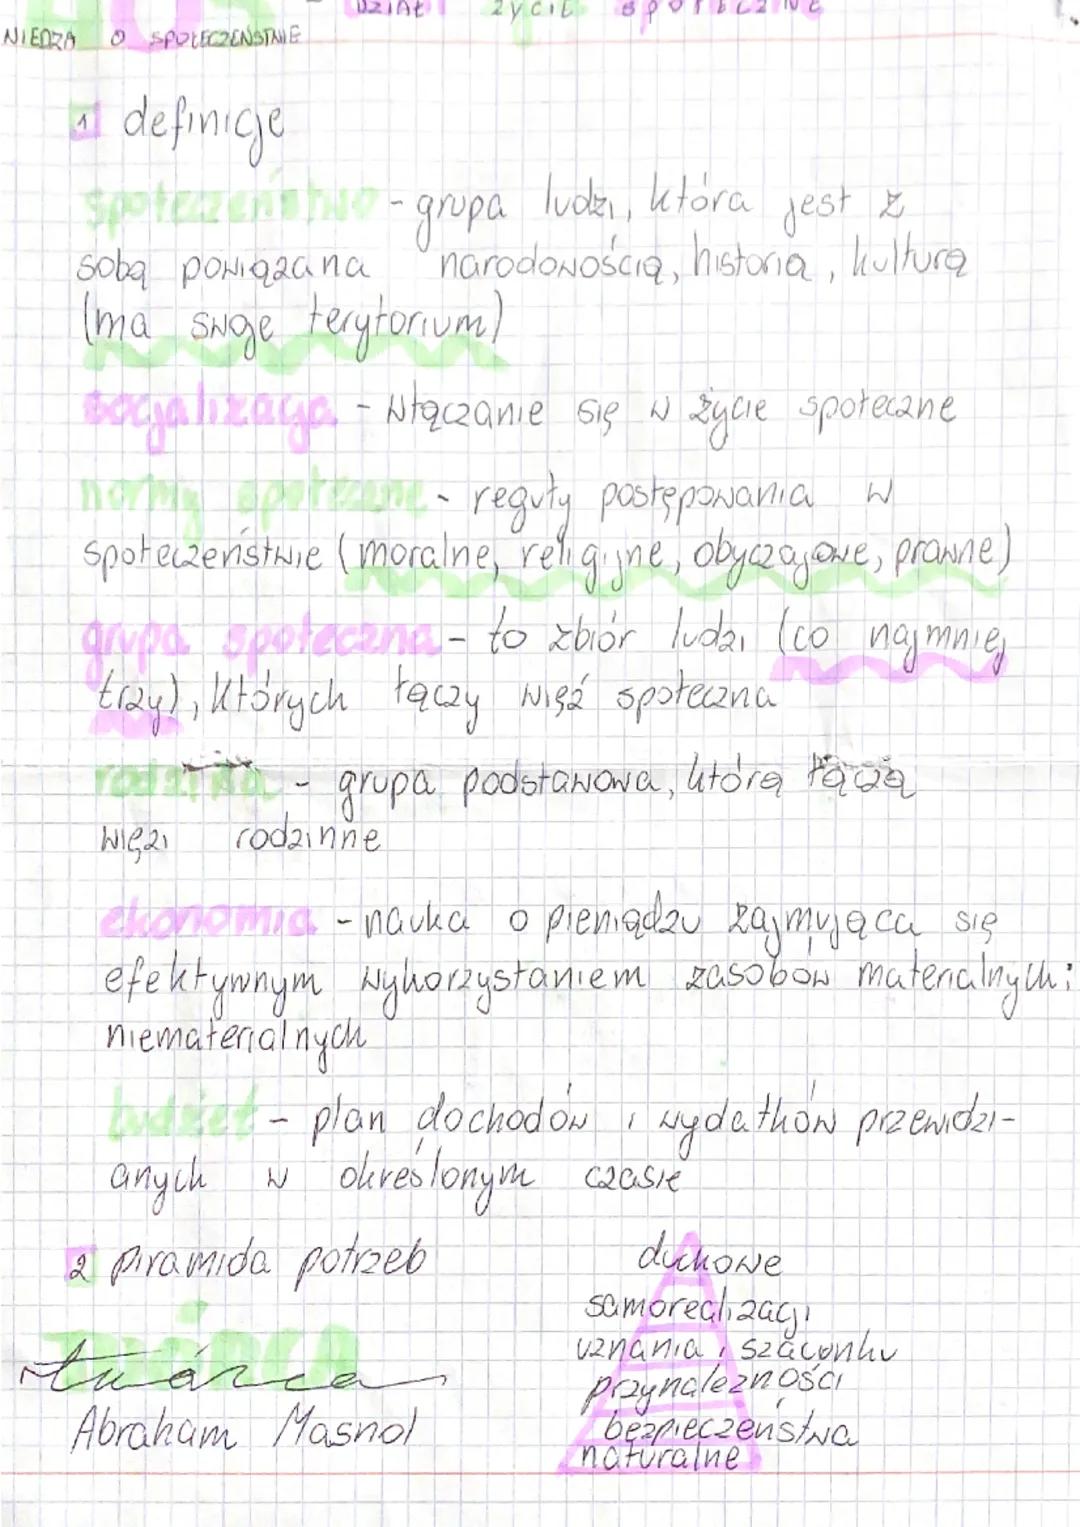 WOS - DZIAŁ 1 ŻYCIE SPOŁECZNE
WIEDZA O SPOŁECZEŃSTWIE
1 definicje
społeczeństwo - grupa ludzi, która jest z
sobą powiązana narodowością, historią, kulturą
(ma swoje terytorium)
socjalizacja - włączanie się w życie społeczne
normy społeczne - reguły postępowania w
społeczeństwie (moralne, religijne, obyczajowe, prawne)
grupa społeczna - to zbiór ludzi (co najmniej
trzy), których łączy więź społeczna
rodzina - grupa podstawowa, którą łączą
więzi rodzinne
ekonomia - nauka o pieniądzu zajmująca się
efektywnym wykorzystaniem zasobów materialnych i
niematerialnych
budżet - plan dochodów i wydatków przewidzi-
anych w określonym czasie
2 piramida potrzeb
twórca
Abraham Masnol
duchowe
samorealizacji
uznania i szacunku
przynależności
bezpieczeństwa
naturalne